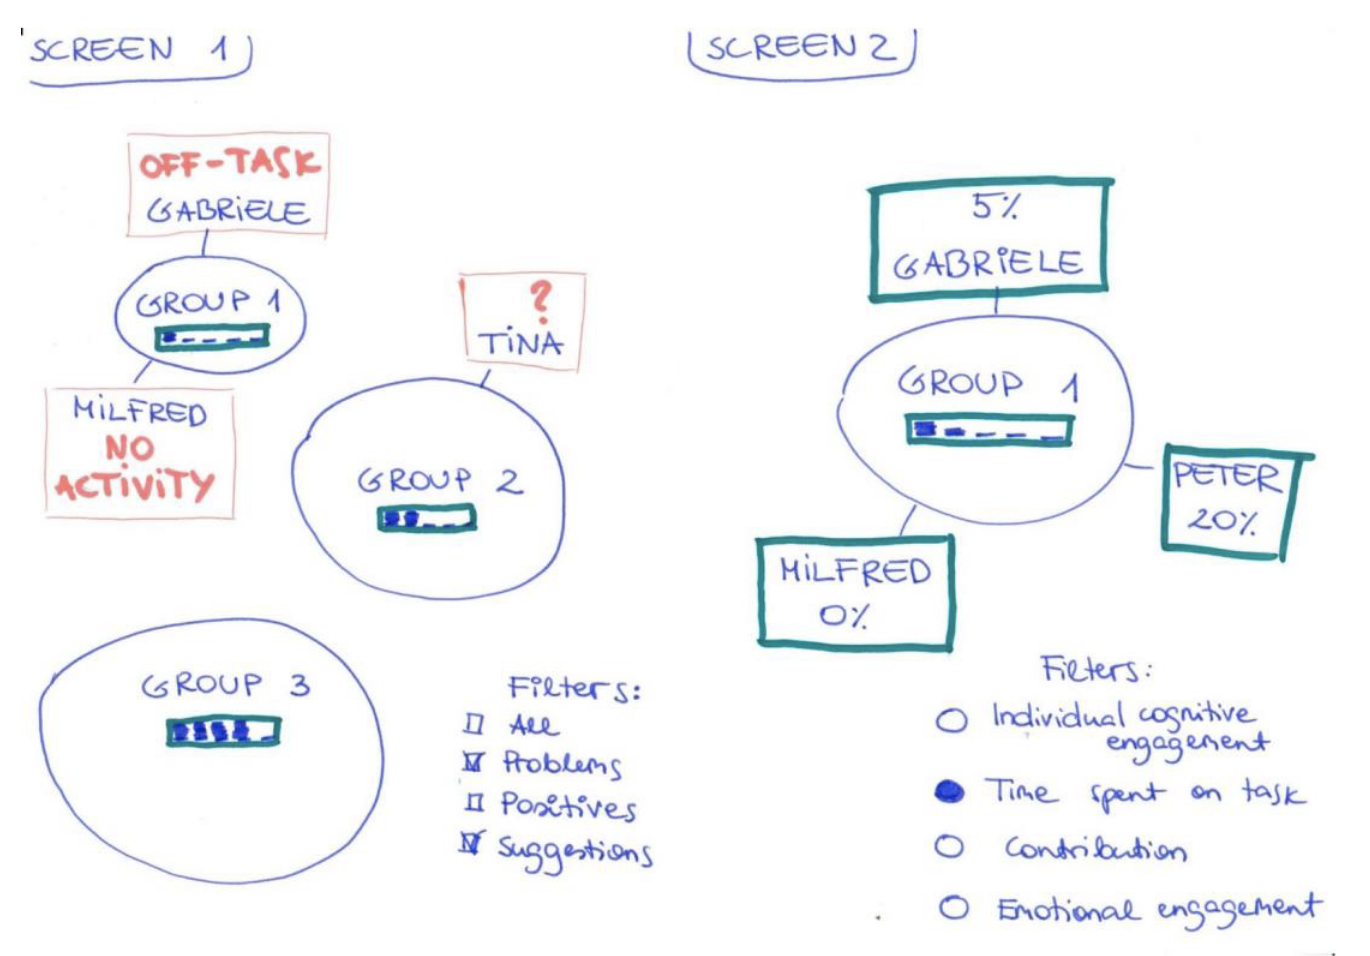 SCREEN 1
OFF-TASK
GABRiELE
GROUP 1
MiLFRED
NO
ACTiViTY
?
TiNA
GROUP 2
GROUP 3
Filters:
All
Problems
Positives
Suggestions
SCREEN 2
5%
GABRiELE
GROUP 1
PETER
20%
MiLFRED
0%
Filters:
Individual cognitive
engagement
Time spent on task
Contribution
Emotional engagement